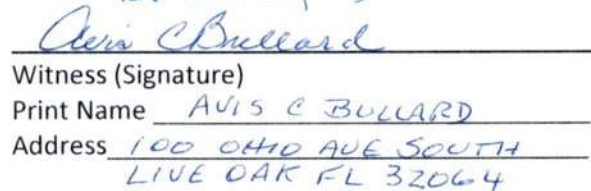 Avis C Bullard
Witness (Signature)
Print Name AVIS C BULLARD
Address 100 OHIO AVE SOUTH
LIVE OAK FL 32064